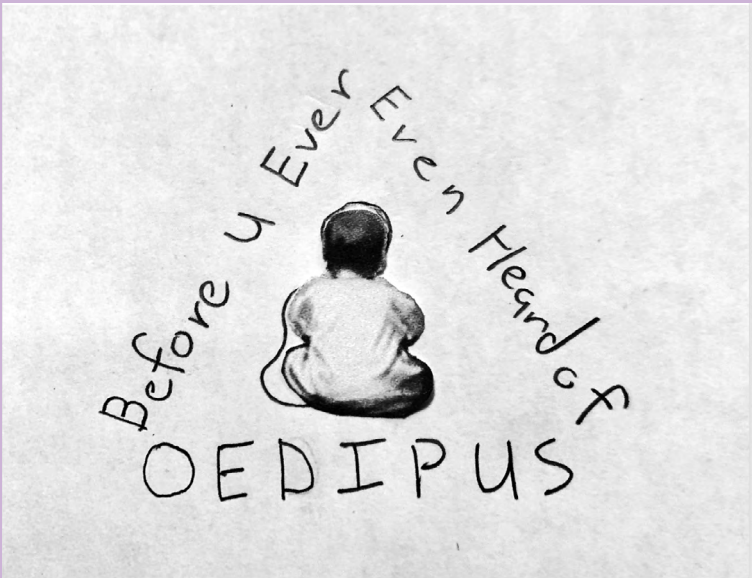 Before U Ever
Even Heard of
OEDIPUS